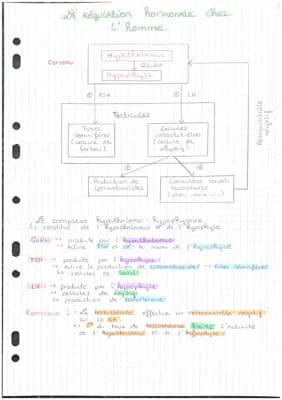 La régulation hormonale chez
L'Homme
Cerveau
Hypothalamus
GnRH
Hypophyse
① FSH
② LH
Testicules
Tubes
séminifères
(cellule de
Sertoli)
Cellules
interstitielles
(cellule de
Leydig)
Rétrocontrôle
négatif
③
④
Production de
spermatozoïdes
Caractères sexuels
secondaires
Le complexe hypothalamo-hypophysaire
constitué de l'hypothalamus et de l'hypophyse
GnRH → produite par l'hypothalamus
→ active FSH et LH au niveau de l'hypophyse
FSH → produite par l'hypophyse
→ active la production de spermatozoïdes → tubes séminifères
cellules de Sertoli
LH → produite par l'hypophyse
→ cellules de Leydig
production de testostérone
Remarque : La testostérone effectue un rétrocontrôle négatif
sur la LH
du taux de testostérone freine l'activité
de l'hypothalamus et de l'hypophyse.